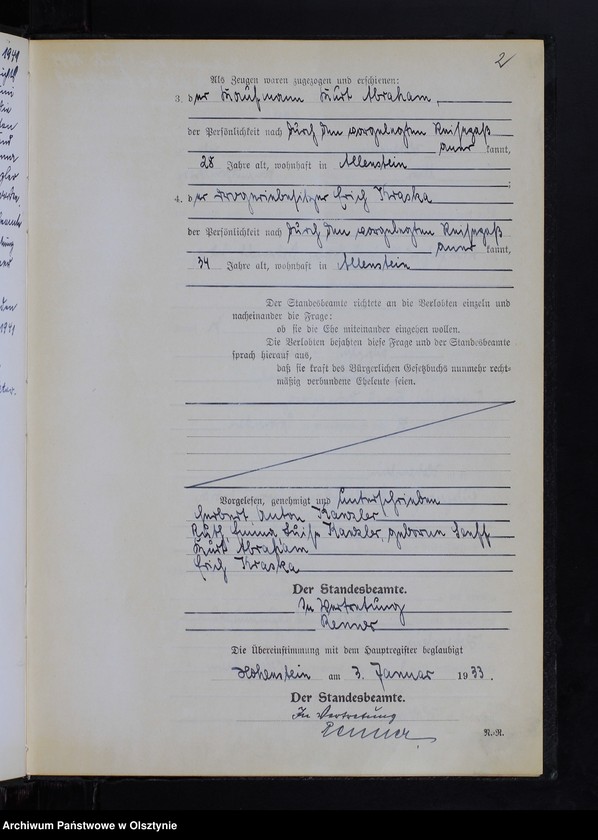 2
Als Zeugen waren zugezogen und erschienen:
3. der Kaufmann Kurt Abraham,
der Persönlichkeit nach durch den vorgelegten Reisepaß
anerkannt,
28 Jahre alt, wohnhaft in Allenstein
;
4. der Drogeriebesitzer Erich Kraska
der Persönlichkeit nach durch den vorgelegten Reisepaß
anerkannt,
34 Jahre alt, wohnhaft in Allenstein
Der Standesbeamte richtete an die Verlobten einzeln und
nacheinander die Frage:
ob sie die Ehe miteinander eingehen wollen.
Die Verlobten bejahten diese Frage und der Standesbeamte
sprach hierauf aus,
daß sie kraft des Bürgerlichen Gesetzbuchs nunmehr recht-
mäßig verbundene Eheleute seien.
Vorgelesen, genehmigt und unterschrieben
Herbert Anton Kanzler
Ruth Emma Luise Kanzler, geborene
Kurt Abraham
Erich Kraska
Der Standesbeamte.
In Vertretung
Renner
Die Übereinstimmung mit dem Hauptregister beglaubigt
Hohenstein am 3. Januar 1933.
Der Standesbeamte.
In Vertretung
Renner
N.-R.
1941
1941
Archiwum Państwowe w Olsztynie